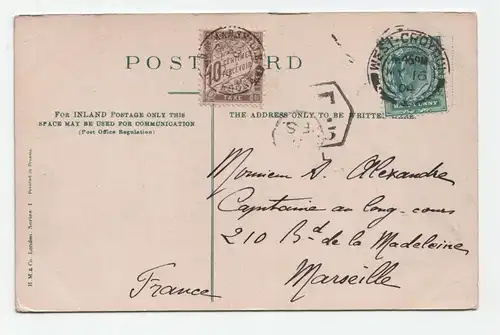 POST CARD
FOR INLAND POSTAGE ONLY THIS
SPACE MAY BE USED FOR COMMUNICATION
(Post Office Regulation)
THE ADDRESS ONLY TO BE WRITTEN HERE.
10
CENTIMES
À PERCEVOIR
TAXE
WEST CROYDON
16
04
HALFPENNY
T
Monsieur A. Alexandre
Capitaine au long-cours
210 Bd de la Madeleine
Marseille
France
H. M. & Co. London. Series 1 - Printed in Prussia.